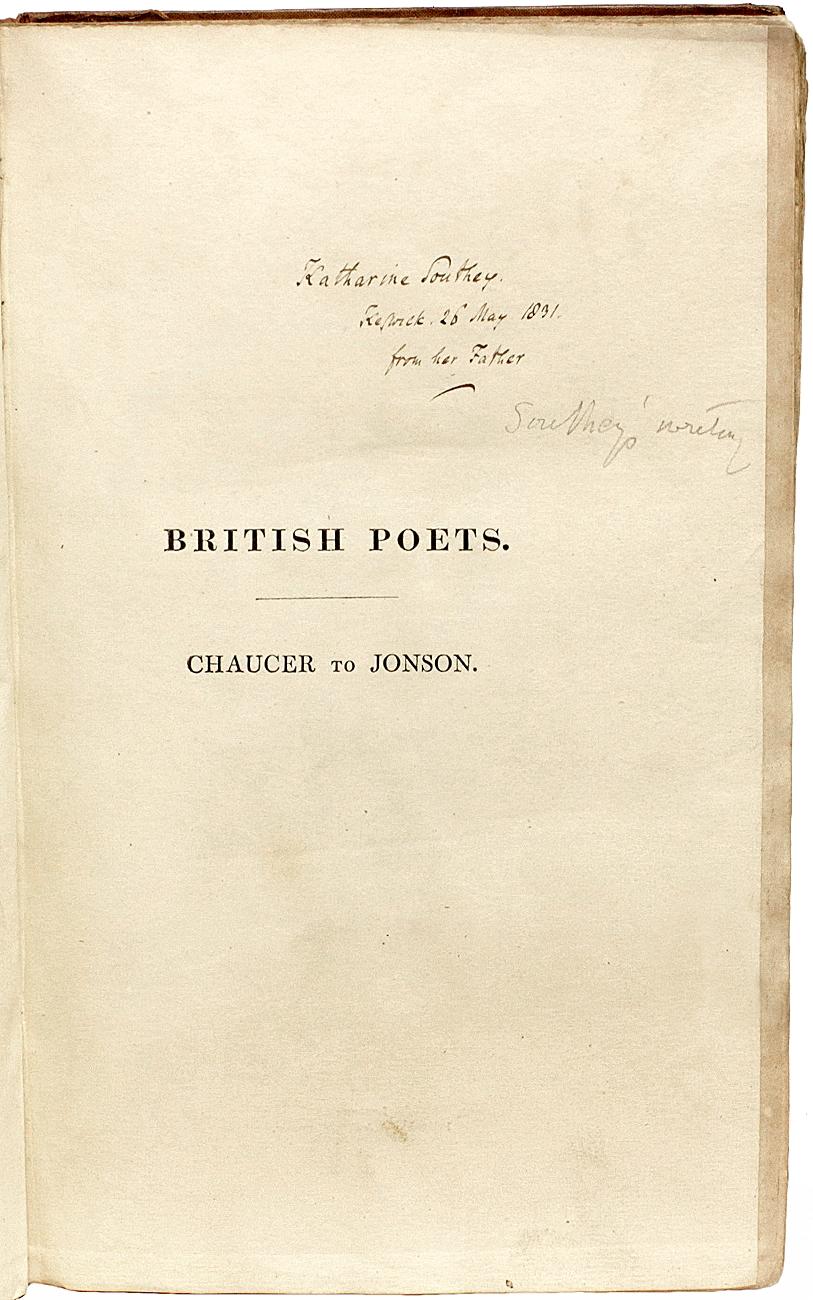 Katharine Southey.
Keswick. 26 May 1831.
from her Father
Southey's writing
BRITISH POETS.
CHAUCER TO JONSON.